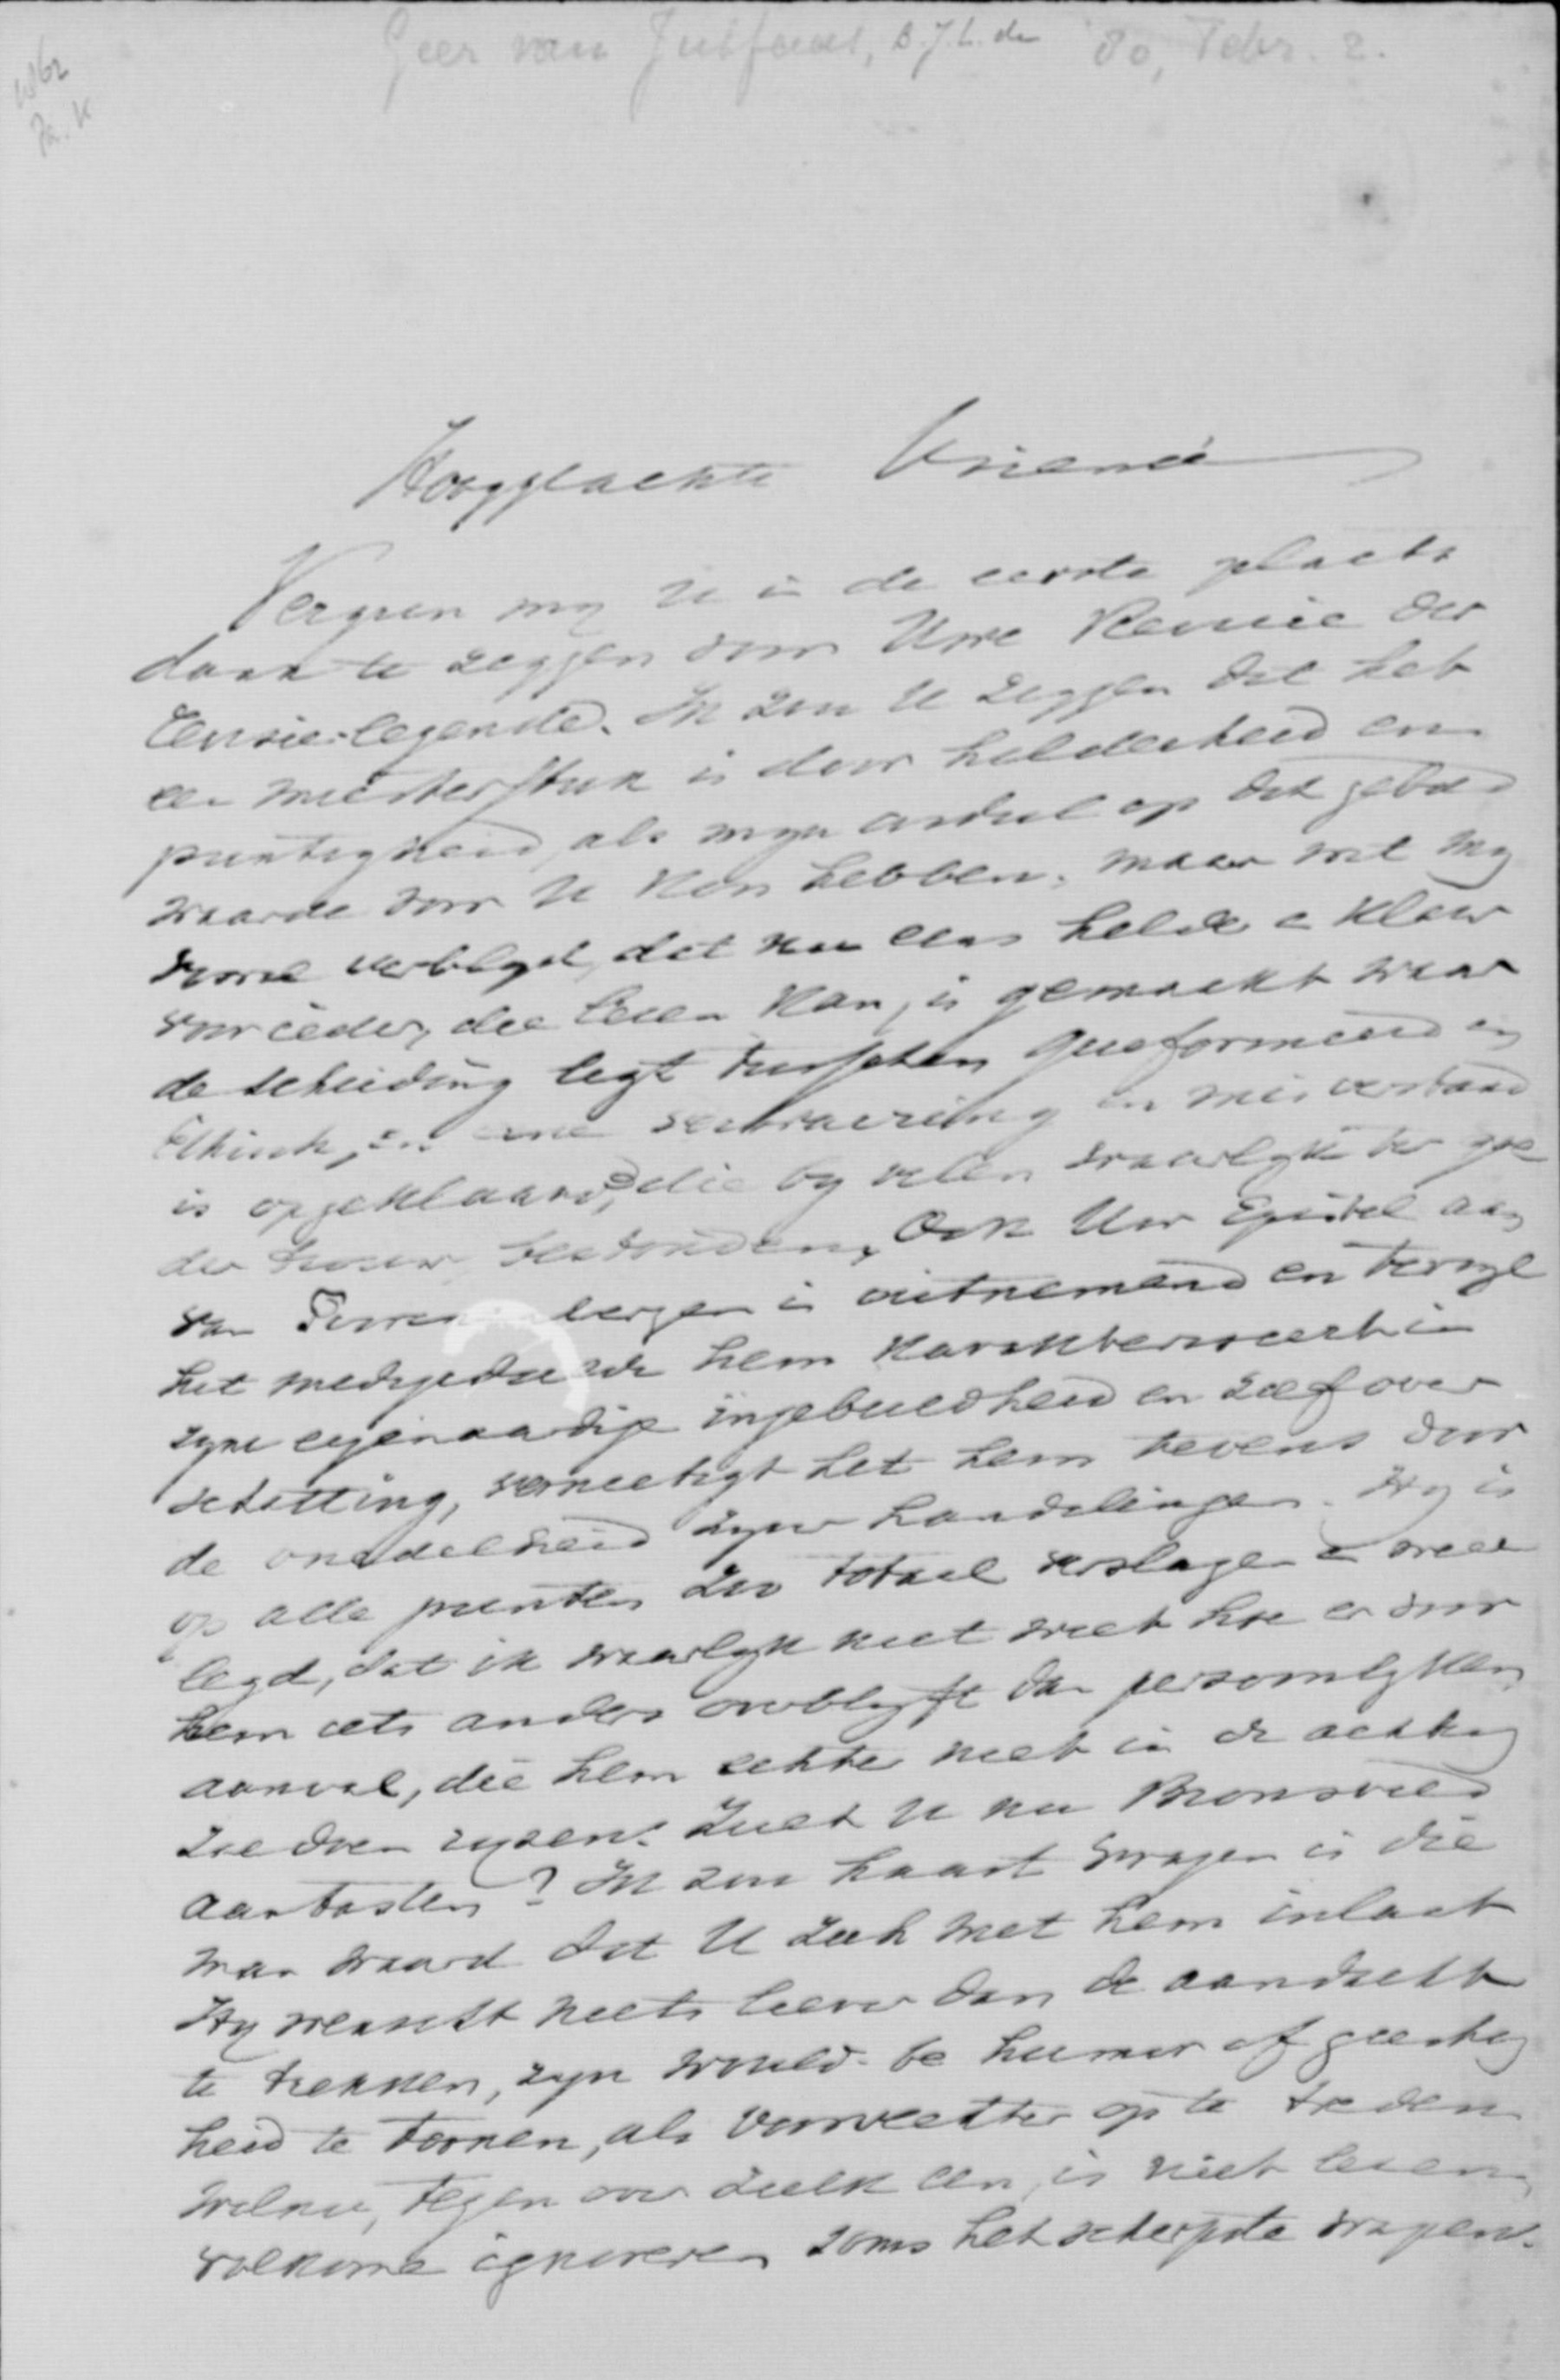 Geer van Jutfaas, B.J.L. de '80, Febr. 2.
Hooggeachte Vriend
Vergun my U in de eerste plaats
dank te zeggen voor Uwe Revisie der
Revisie-legende. Ik zou U zeggen dat het
een meesterstuk is door helderheid en
puntigheid, als myn oordeel op dat gebied
waarde voor U kon hebben, maar wel my
vooral verblyd, dat nu eens helder & klaar
voor ieder, die lezen kan, is gemaakt waar
de scheiding legt tusschen Gereformeerd en
Ethisch, en eene verwarring en misverstand
is opgeklaard, die by velen waarlyk ter goe
der trouw bestonden. Ook Uw Epistel aan
van Toorenenbergen is uitnemend en terwyl
het medegedeelde hem karakteriseert in
zyne eigenaardige ingebeeldheid en zelfover
schatting, vernietigt het hem tevens door
de onedelheid zyner handelingen. Hy is
op alle punten zoo totaal verslagen & weer
legd, dat ik waarlyk niet weet hoe er voor
hem iets anders overblyft dan persoonlyken
aanval, die hem echter niet in de achting
zal doen ryzen. Zult U nu Bronsveld
aantasten? Ik zou haast vragen is die
man waard dat U zich met hem inlaat
Hy wenscht niets liever dan de aandacht
te trekken, zyn would-be humor of geestig
heid te toonen, als voorvechter op te treden
welnu, tegen over zulk een, is niet lezen,
volkomen ignoreren soms het scherpste wapen.